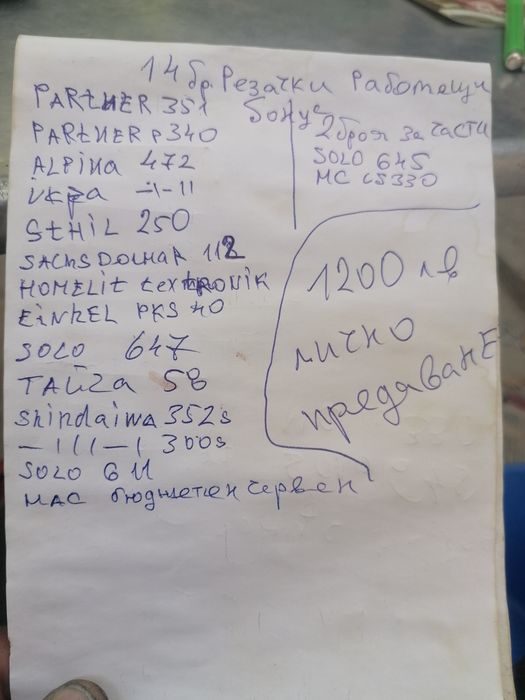 14 бр. Резачки Работещи
PARTNER 351
PARTNER P340
ALPINA 472
-//-11
STHIL 250
SACHS DOLMAR 112
HOMELIT textRONIK
EINHEL PKS 40
SOLO 647
ТАЙГА 58
Shindaiwa 352s
-III-I 300s
SOLO 611
MAC бюджетен червен
Бонус
2 броя за части
SOLO 645
MC CS330
1200 лв
лично
предаване